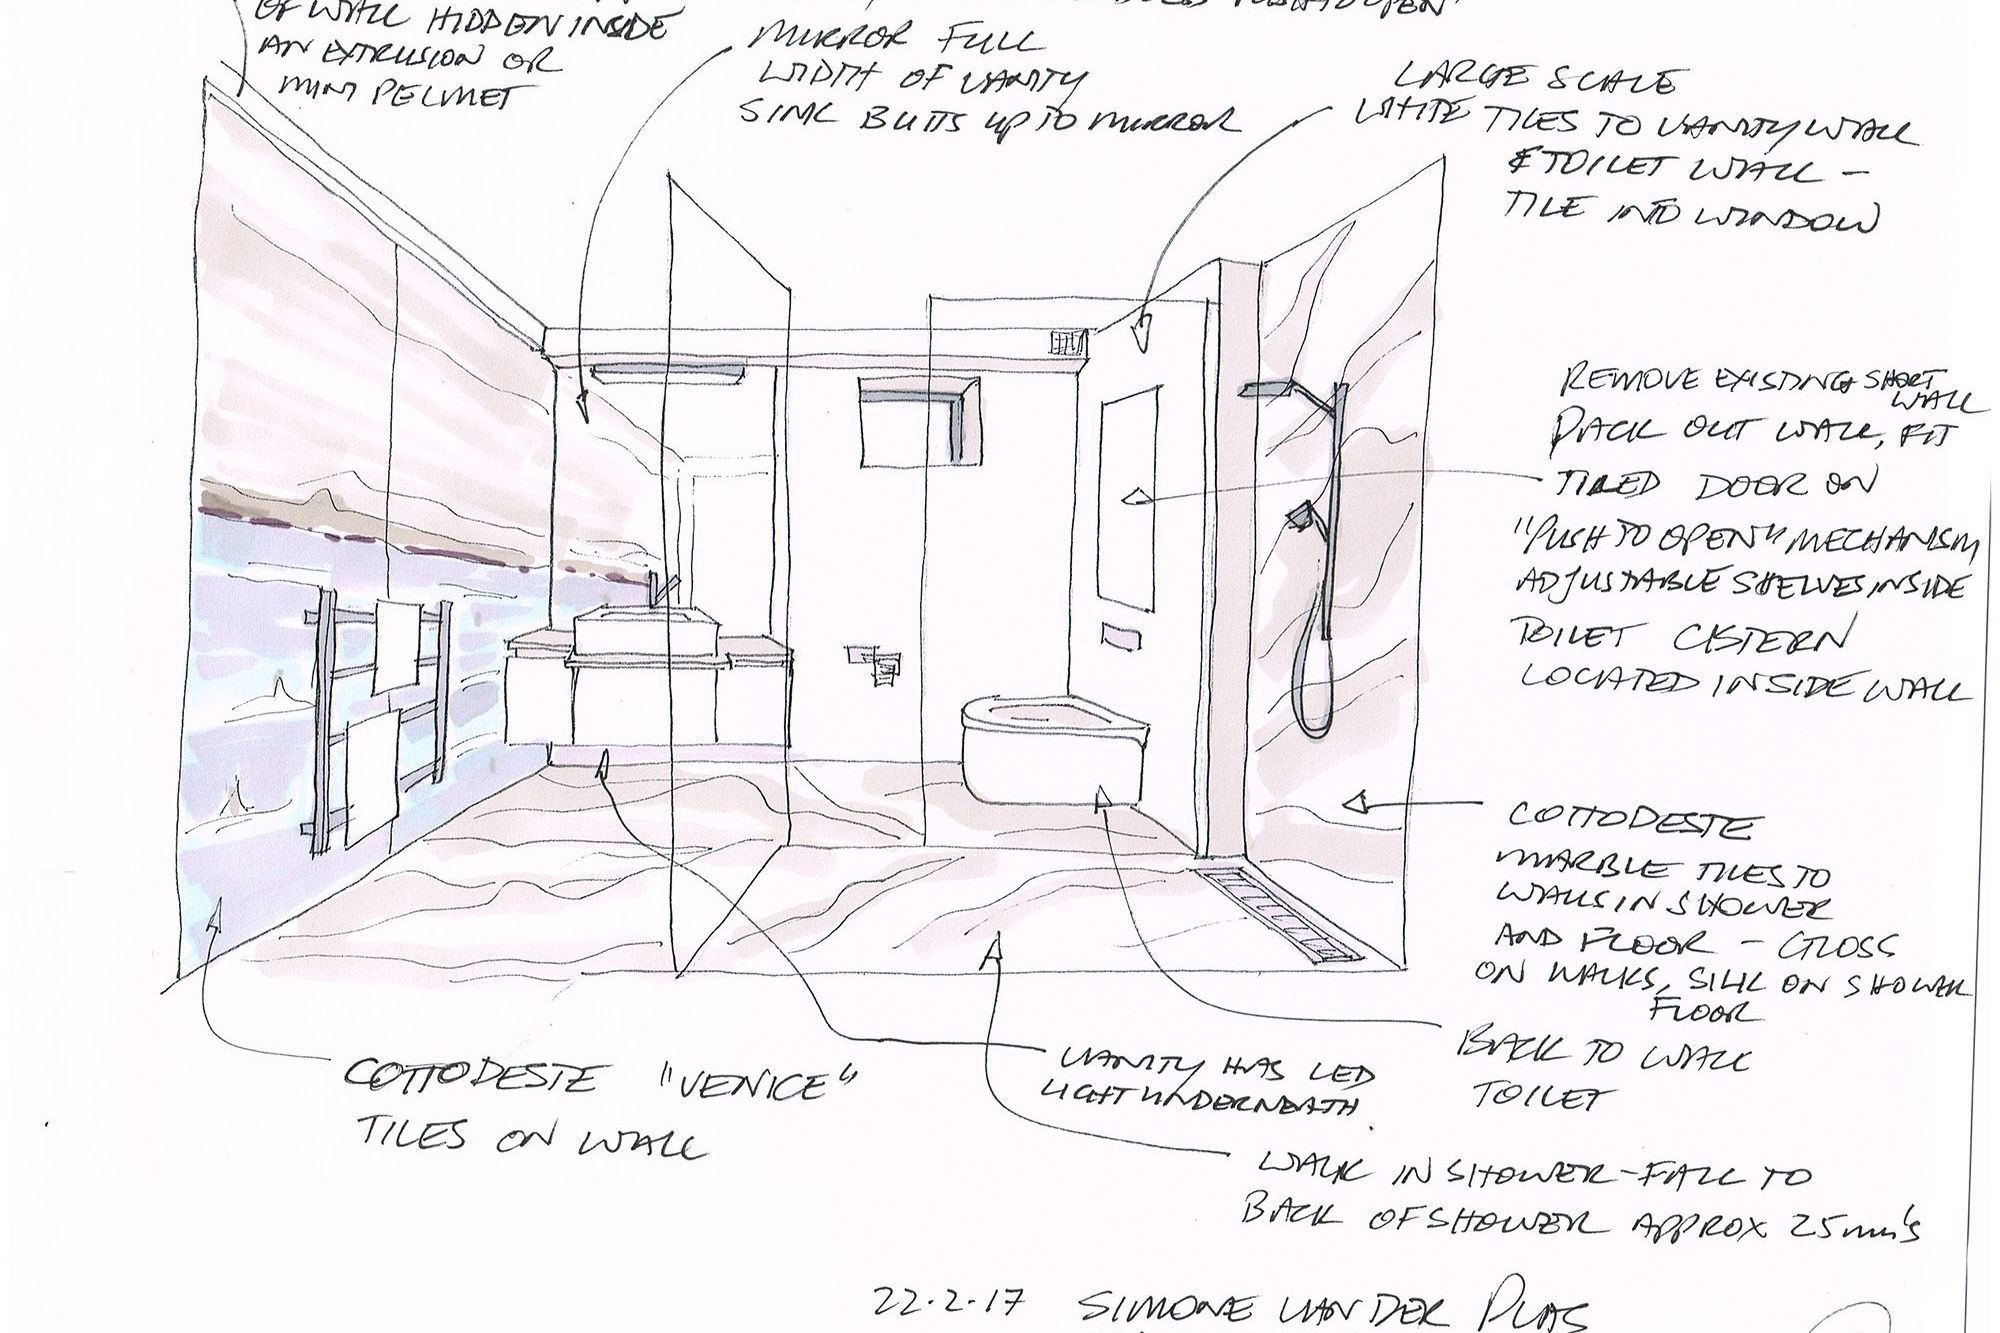 OF WALL HIDDEN INSIDE
AN EXTRUSION OR
MINI PELMET
PUSH TO OPEN"
MIRROR FULL
WIDTH OF VANITY
SINK BUTTS UP TO MIRROR
LARGE SCALE
WHITE TILES TO VANITY WALL
& TOILET WALL –
TILE INTO WINDOW
REMOVE EXISTING SHORT
WALL
PACK OUT WALL, FIT
TILED DOOR ON
"PUSH TO OPEN" MECHANISM
ADJUSTABLE SHELVES INSIDE
TOILET CISTERN
LOCATED INSIDE WALL
COTTODESTE
MARBLE TILES TO
WALLS IN SHOWER
AND FLOOR – GLOSS
ON WALLS, SILK ON SHOWER
FLOOR
BACK TO WALL
TOILET
COTTODESTE "VENICE"
TILES ON WALL
VANITY HAS LED
LIGHT UNDERNEATH.
WALK IN SHOWER – FALL TO
BACK OF SHOWER APPROX 25mm's
22.2.17 SIMONE VAN DER PLAS